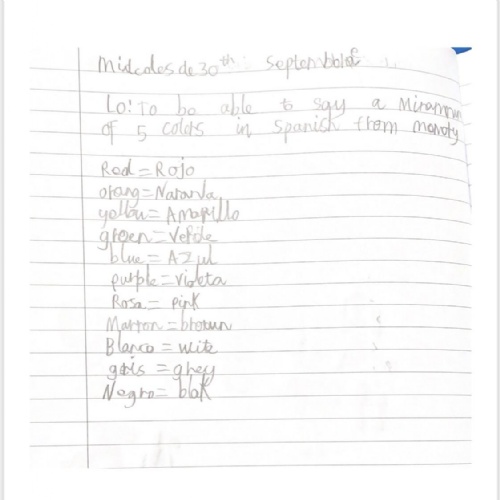 Miscoles de 30th September
Lo: To be able to say a Miramum
of 5 colors in Spanish from memoty
Red = Rojo
orang = Naranda
yellow = Amarillo
green = Verde
blue = Azul
purple = violeta
Rosa = pink
Marron = brown
Blanco = wite
gris = grey
Negro = blak